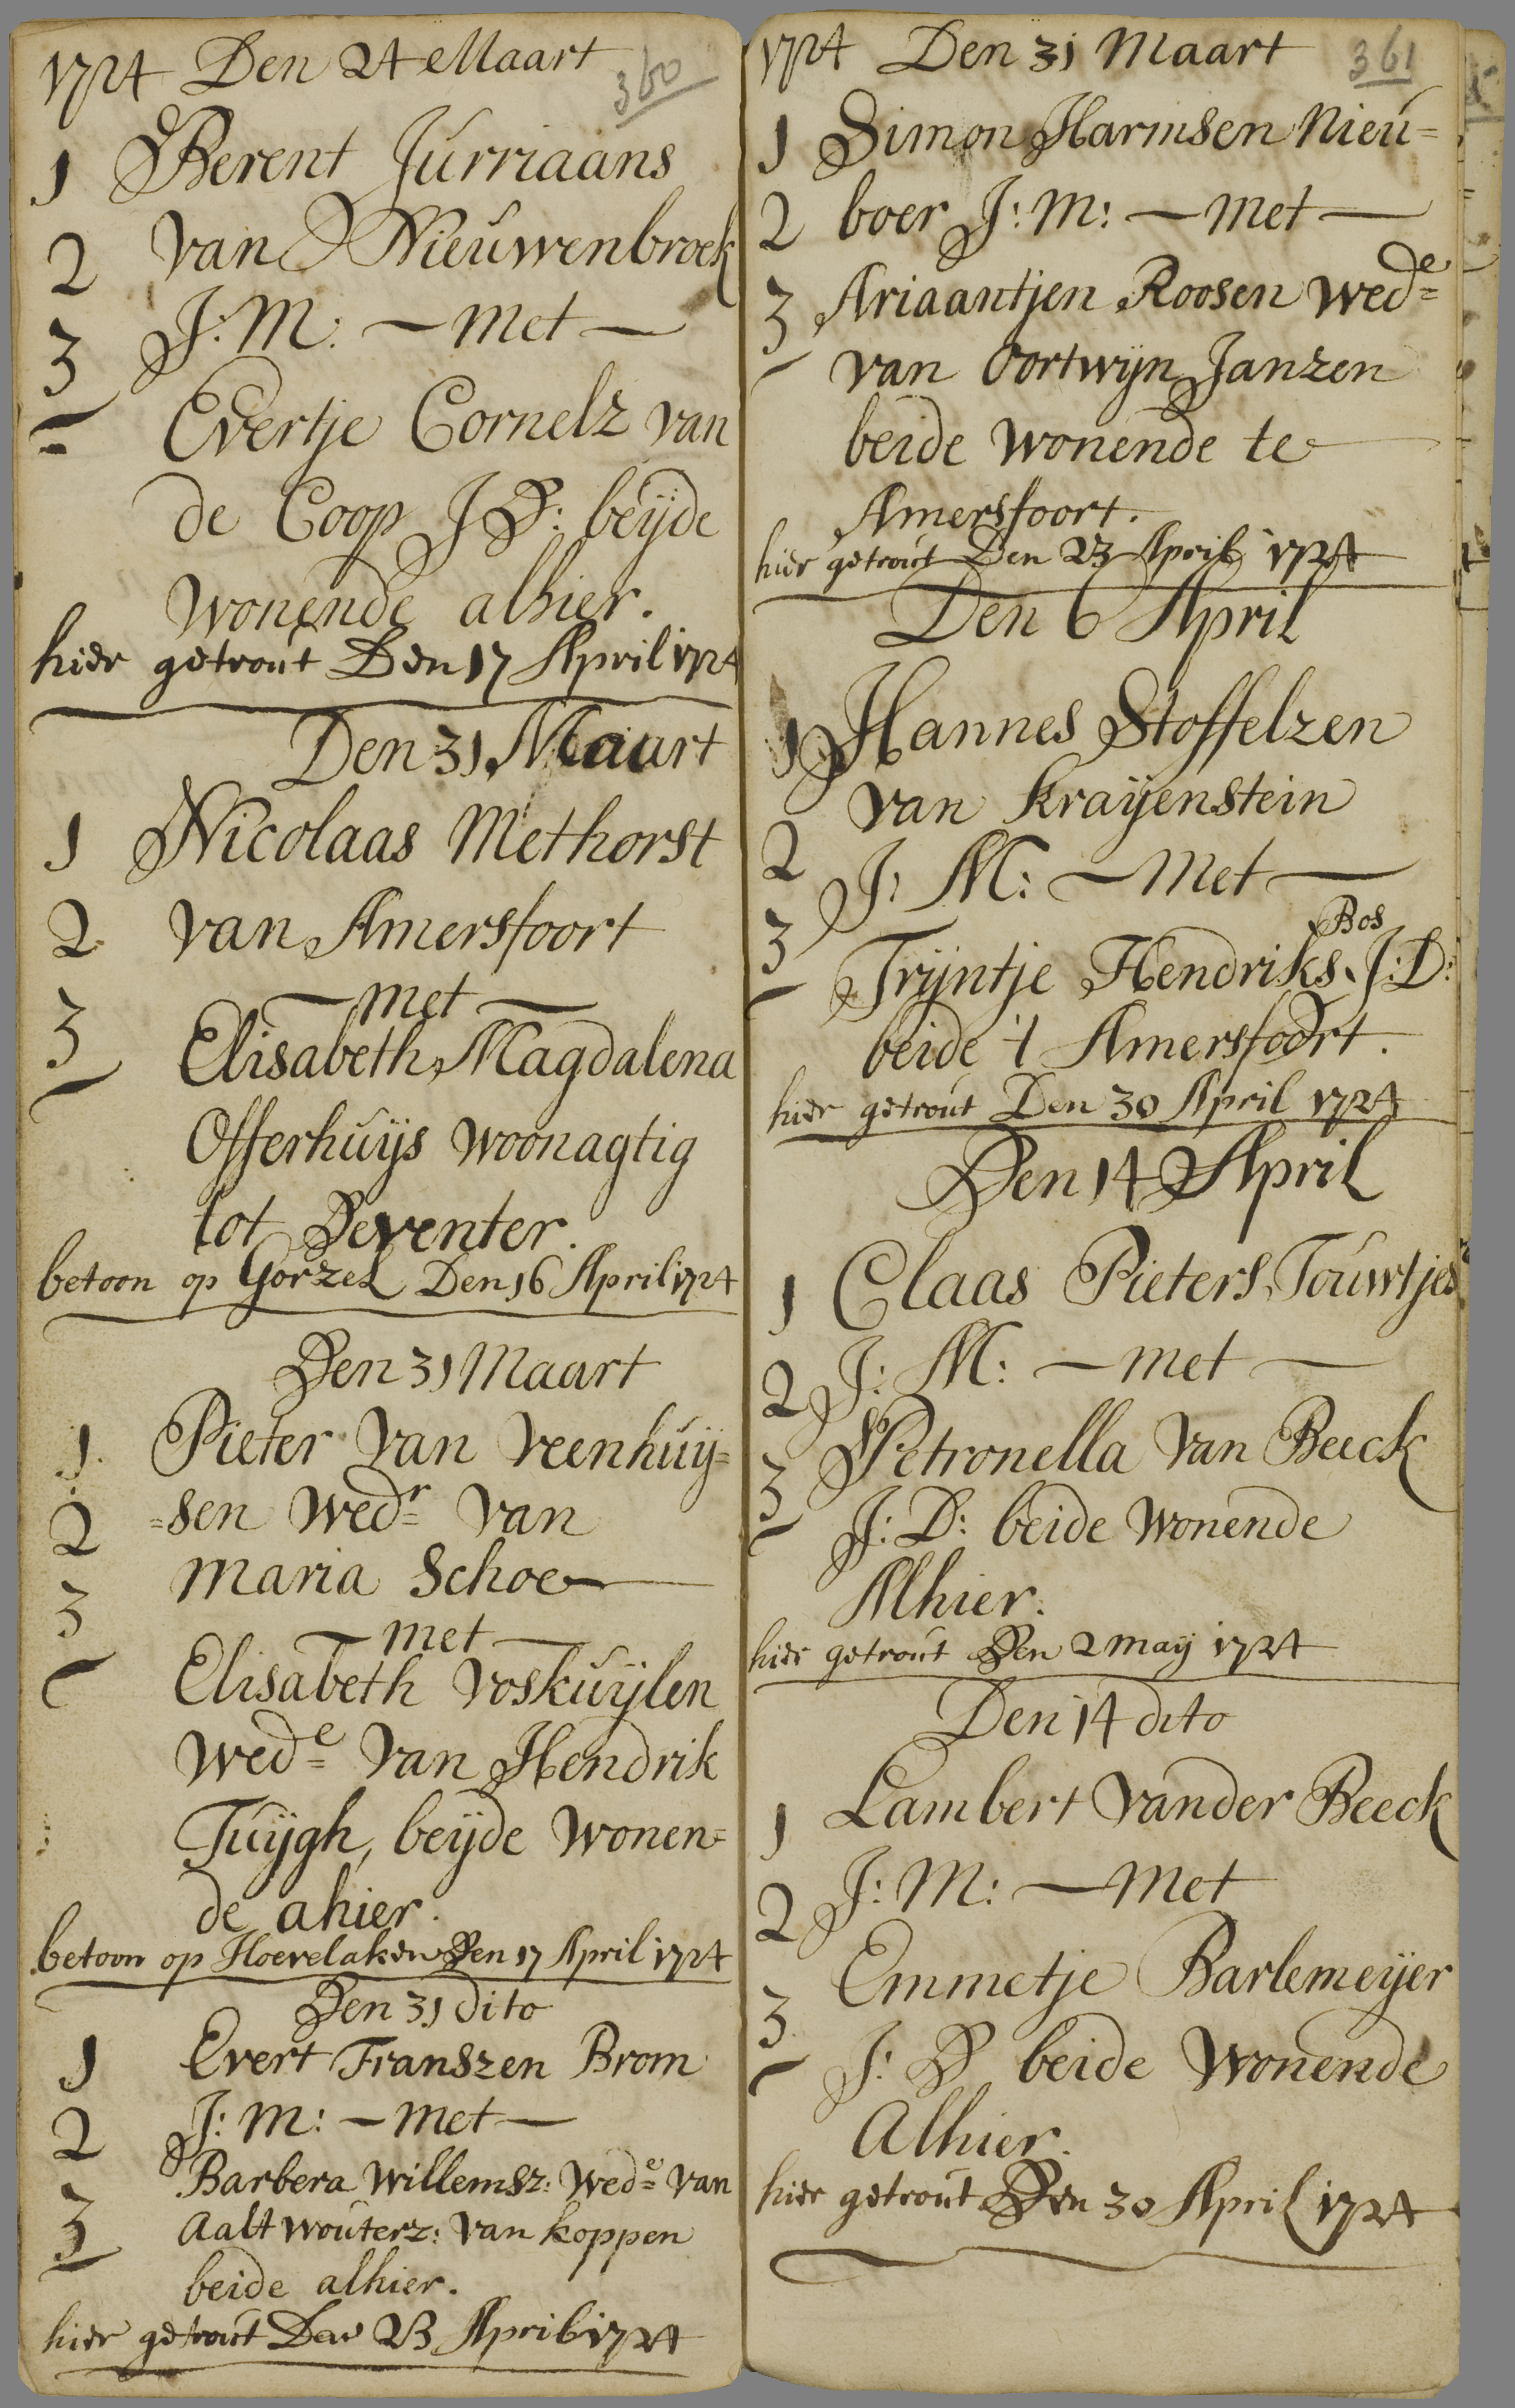 1724 Den 24 Maart 360
1 Berent Jurriaans
2 van Nieuwenbroek
3 J: M: — met —
Evertje Cornelz van
de Coop J D: beijde
wonende alhier.
hier getrout Den 17 April 1724
Den 31 Maart
1 Nicolaas Methorst
2 van Amersfoort
— met —
3 Elisabeth Magdalena
Offerhuijs woonagtig
tot Deventer.
betoon op Gorzel Den 16 April 1724
Den 31 Maart
1 Pieter van veenhuij=
2 =sen wedr= van
3 maria Schoe —
— met —
Elisabeth voskuijlen
wede= van Hendrik
Tuijgh, beijde wonen=
de ahier.
betoon op Hoevelaken Den 17 April 1724
Den 31 dito
1 Evert Franszen Brom
2 J: M: — met —
Barbera Willemsz: wede= van
3 Aalt wouterz: van koppen
beide alhier.
hier getrout Den 23 April 1724
1724 Den 31 Maart 361
1 Simon Harmsen Nieu=
2 boer J: M: — met —
3 Ariaantjen Roosen wede=
van Oortwijn Janzen
beide wonende te
Amersfoort.
hier getrout Den 23 April 1724
Den 6 April
1 Hannes Stoffelzen
van Kraijenstein
2 J: M: — met —
Bos
3 Trijntje Hendriks. J: D:
beide 't Amersfoort.
hier getrout Den 30 April 1724
Den 14 April
1 Claas Pieters Touwtjes
2 J: M: — met —
3 Petronella van Beeck
J: D: beide wonende
Alhier.
hier getrout Den 2 maij 1724
Den 14 dito
1 Lambert vander Beeck
2 J: M: — met
Emmetje Barlemeijer
3 J: D beide wonende
Alhier.
hier getrout Den 30 April 1724